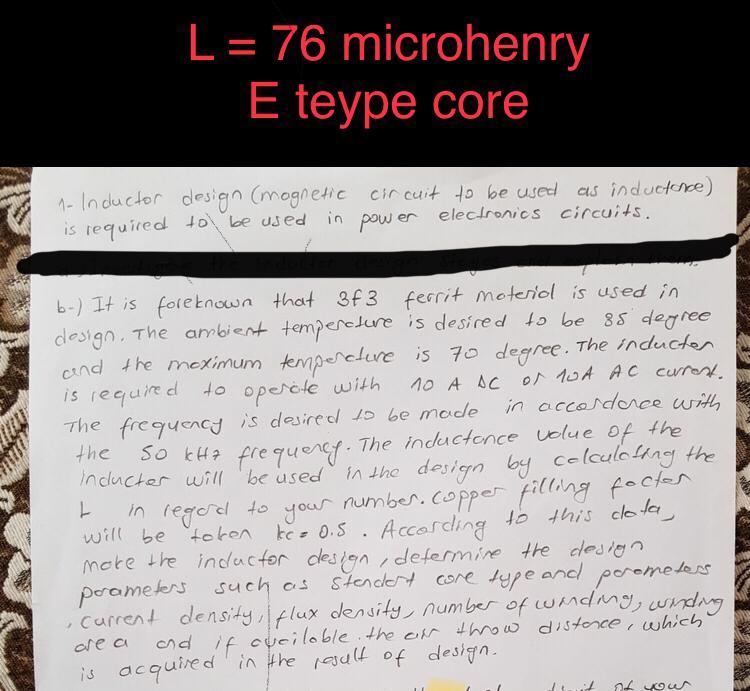 L = 76 microhenry
E teype core
1- Inductor design (magnetic circuit to be used as inductance)
is required to be used in power electronics circuits.
b-) It is foreknown that 3f3 ferrit material is used in
design. The ambient temperature is desired to be 85 degree
and the maximum temperature is 70 degree. The inductor
is required to operate with 10 A DC or 10A AC current.
The frequency is desired to be made in accordance with
the 50 kHz frequency. The inductance value of the
inductor will be used in the design by calculating the
L in regard to your number. copper filling factor
will be token kc = 0.5. According to this data,
make the inductor design, determine the design
parameters such as standart core type and parameters
, current density, flux density, number of winding, winding
area and if available the air throw distance, which
is acquired in the result of design.
of your